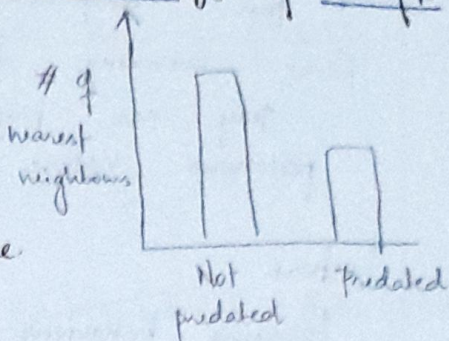 # of
nearest
neighbours
e.
Not
predated
Predated